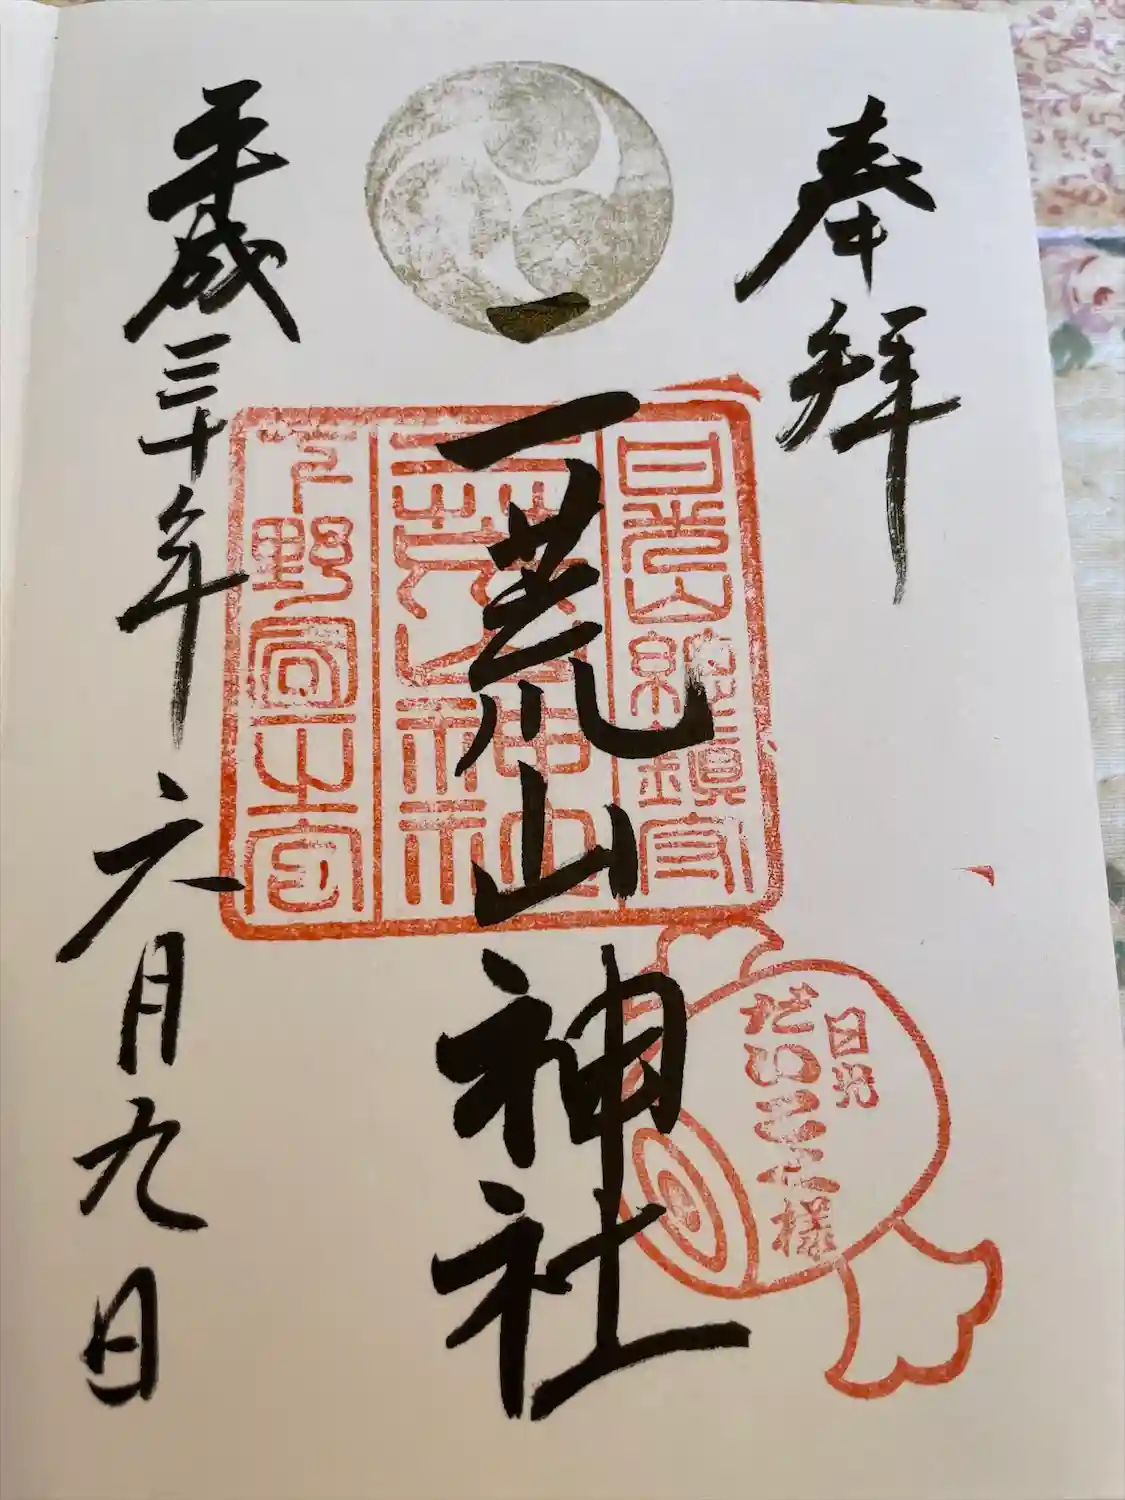 奉拝
二荒山神社
平成三十年六月九日
日光山総鎮守
二荒山神社
下野國一之宮
日光
だいこく様